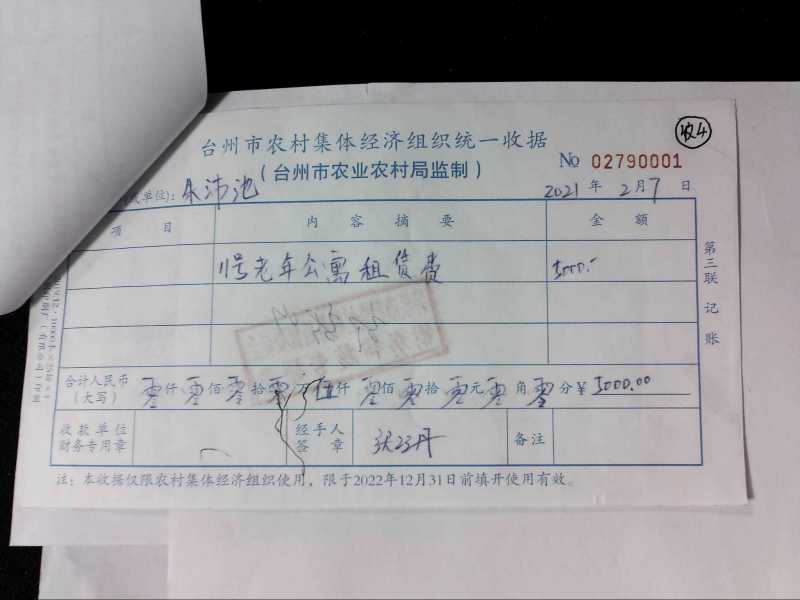 收4
台州市农村集体经济组织统一收据
(台州市农业农村局监制)
No 02790001
单位): 朱沛池
2021 年 2 月 7 日
项 目 内 容 摘 要 金 额
11号老年公寓租赁费 5000.-
合计人民币(大写) 零仟零佰零拾零万伍仟零佰零拾零元零角零分 ¥5000.00
收款单位财务专用章 经手人签章 备注
注:本收据仅限农村集体经济组织使用,限于2022年12月31日前填开使用有效。
第三联 记账